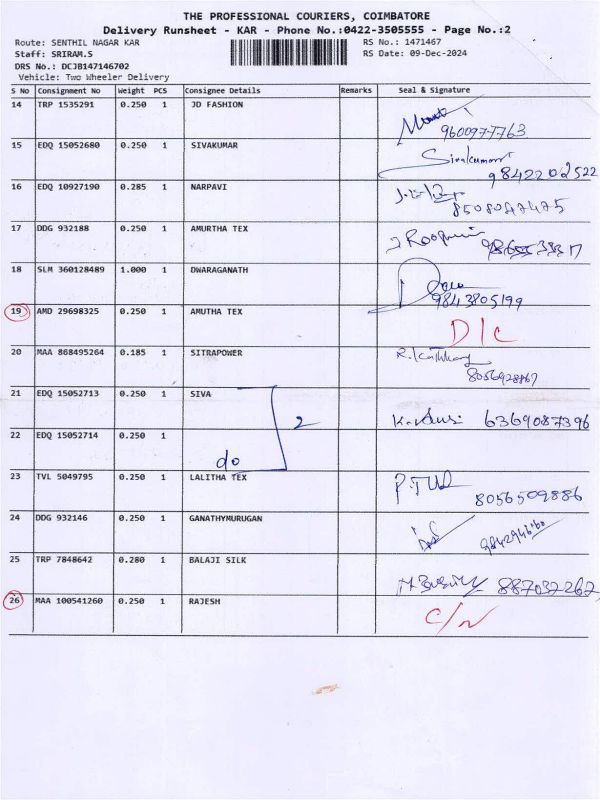 THE PROFESSIONAL COURIERS, COIMBATORE
Delivery Runsheet - KAR - Phone No.:0422-3505555 - Page No.:2
Route: SENTHIL NAGAR KAR RS No.: 1471467
Staff: SRIRAM.S RS Date: 09-Dec-2024
DRS No.: DCJB147146702
Vehicle: Two Wheeler Delivery
S No Consignment No Weight PCS Consignee Details Remarks Seal & Signature
14 TRP 1535291 0.250 1 JD FASHION
9600977763
15 EDQ 15052680 0.250 1 SIVAKUMAR Sivakumar
9842202522
16 EDQ 10927190 0.285 1 NARPAVI
8508047475
17 DDG 932188 0.250 1 AMURTHA TEX
18 SLM 360128489 1.000 1 DWARAGANATH
9843805199
19 AMD 29698325 0.250 1 AMUTHA TEX D/C
20 MAA 868495264 0.185 1 SITRAPOWER
21 EDQ 15052713 0.250 1 SIVA 2
6369087396
22 EDQ 15052714 0.250 1 do
23 TVL 5049795 0.250 1 LALITHA TEX
8056509886
24 DDG 932146 0.250 1 GANATHYMURUGAN
25 TRP 7848642 0.280 1 BALAJI SILK
887032262
26 MAA 100541260 0.250 1 RAJESH C/N